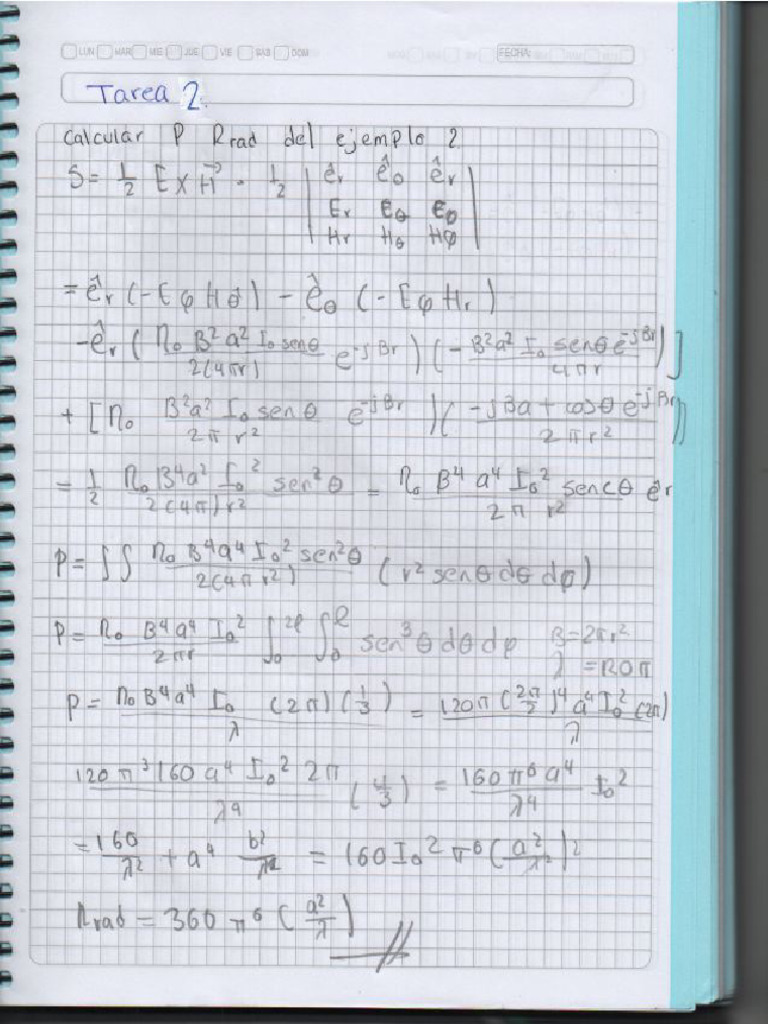 LUN MAR MIE JUE VIE SAB DOM FECHA:
Tarea 2.
Calcular P Rrad del ejemplo 2
S = 1/2 E x H⃗ = 1/2 | êr êθ êr |
| Er Eθ Eø |
| Hr Hθ Hφ |
= êr (-Eφ Hθ) - êθ (-Eφ Hr)
-êr ( η0 B²a² I0 senθ / 2(4πr) e^-jBr ) ( - B²a² I0 senθ e^-jBr / 4πr ) ]
+ [ η0 B²a² I0 senθ / 2πr² e^-jBr ) ( -jBa + cosθ e^-jBr / 2πr² ) ]
= 1/2 η0 B⁴a² I0² / 2(4π)r² sen²θ = η0 B⁴ a⁴ I0² sencθ / 2π r² êr
P = ∫∫ η0 B⁴a⁴ I0² sen²θ / 2(4πr²) ( r² senθ dθ dφ )
P = η0 B⁴a⁴ I0² / 2πr ∫0 ∫0 sen³θ dθ dφ B = 2πr²
λ = 120π
P = η0 B⁴a⁴ I0 / λ (2π) (1/3) = 120π (2π/2)⁴ a⁴ I0² (2π) / λ
120 π³ 160 a⁴ I0² 2π / λ⁴ (4/3) = 160 π⁶ a⁴ / λ⁴ I0²
= 160 / λ² + a⁴ b² / λ² = 160 I0² π⁶ ( a² / λ² )²
Rrad = 360 π⁶ ( a² / λ )